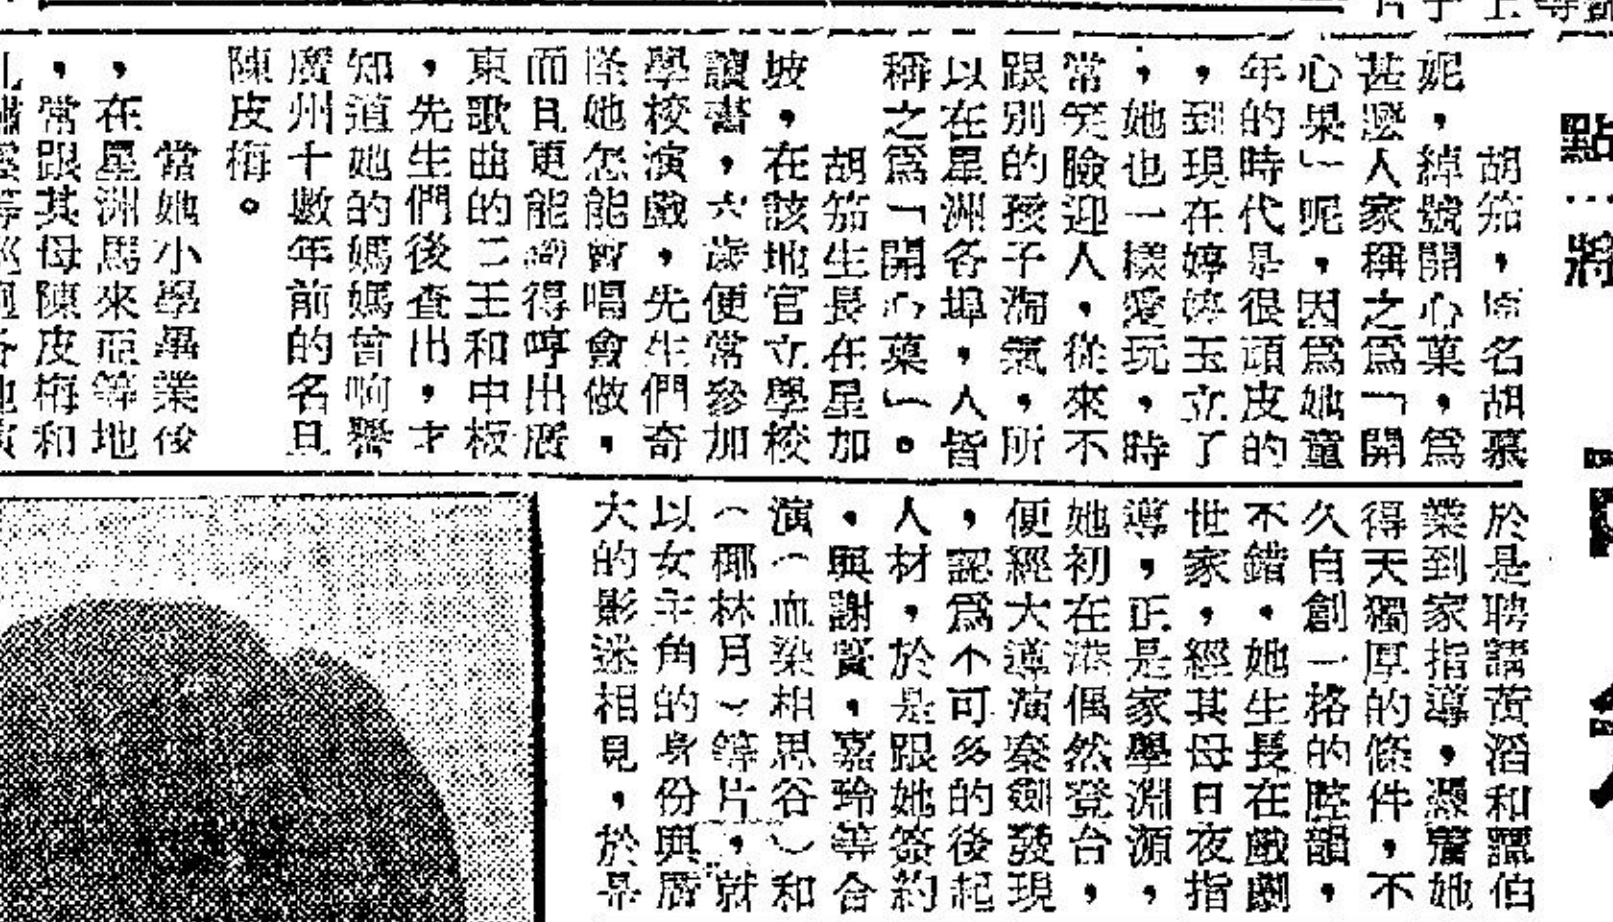 胡笳，原名胡慕
妮，綽號開心菓，爲
甚麼人家稱之爲「開
心果」呢，因爲她童
年的時代是很頑皮的
，到現在婷婷玉立了
，她也一樣愛玩，時
常笑臉迎人，從來不
跟別的孩子淘氣，所
以在星洲各埠，人皆
稱之爲「開心菓」。
胡笳生長在星加
坡，在該地官立學校
讀書，六歲便常參加
學校演戲，先生們奇
怪她怎能會唱會做，
而且更能得哼出廣
東歌曲的二王和中板
，先生們後查出，才
知道她的媽媽曾响譽
廣州十數年前的名旦
陳皮梅。
當她小學畢業後
，在星洲馬來亞等地
，常跟其母陳皮梅和
於是聘請黃滔和譚伯
業到家指導，憑着她
得天獨厚的條件，不
久自創一格的腔韻，
不錯，她生長在戲劇
世家，經其母日夜指
導，正是家學淵源，
她初在港偶然登台，
便經大導演秦劍發現
，認爲不可多的後起
人材，於是跟她簽約
，與謝賢，嘉玲等合
演（血染相思谷）和
（椰林月）等片，就
以女主角的身份與廣
大的影迷相見，於是
點…將